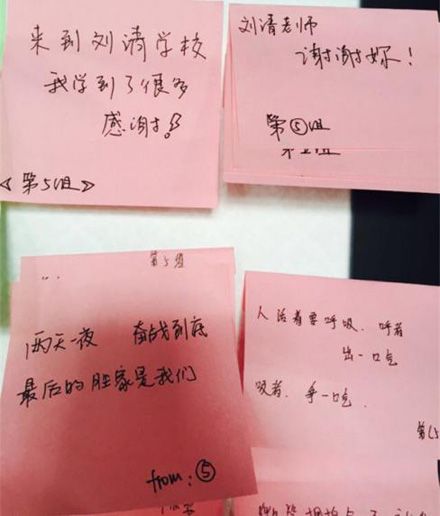 来到刘清学校
我学到了很多
感谢!!
《第5组》
刘清老师
谢谢妳!
第⑤组
第5组
两天一夜 奋战到底
最后的胜家是我们
from:⑤
人活着要呼吸. 呼者
出一口气
吸者. 争一口气.
第5